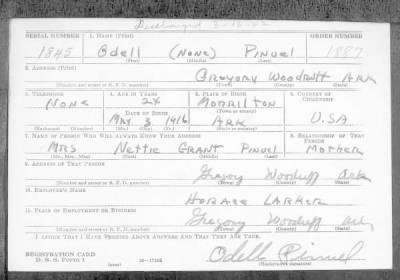 Discharged
SERIAL NUMBER 1. NAME (Print) ORDER NUMBER
1845 Odell (NONE) Pinuel 1887
(First) (Middle) (Last)
2. ADDRESS (Print)
Gregory Woodruff ARK
(Number and street or R. F. D. number) (Town) (County) (State)
3. TELEPHONE 4. AGE IN YEARS 5. PLACE OF BIRTH 6. COUNTRY OF CITIZENSHIP
NONE 24 MORRILTON
DATE OF BIRTH (Town or county)
MAY 3 1916 ARK U.S.A
(Exchange) (Number) (Mo.) (Day) (Yr.) (State or country)
7. NAME OF PERSON WHO WILL ALWAYS KNOW YOUR ADDRESS 8. RELATIONSHIP OF THAT PERSON
MRS Nettie GRANT Pinuel Mother
(Mr., Mrs., Miss) (First) (Middle) (Last)
9. ADDRESS OF THAT PERSON
Gregory Woodruff Ark
(Number and street or R. F. D. number) (Town) (County) (State)
10. EMPLOYER'S NAME
HORACE LARKER
11. PLACE OF EMPLOYMENT OR BUSINESS
Gregory Woodruff Ark
(Number and street or R. F. D. number) (Town) (County) (State)
I AFFIRM THAT I HAVE VERIFIED ABOVE ANSWERS AND THAT THEY ARE TRUE.
REGISTRATION CARD
D. S. S. FORM 1 Odell Pinuel
(over) 16-17105 (Registrant's signature)